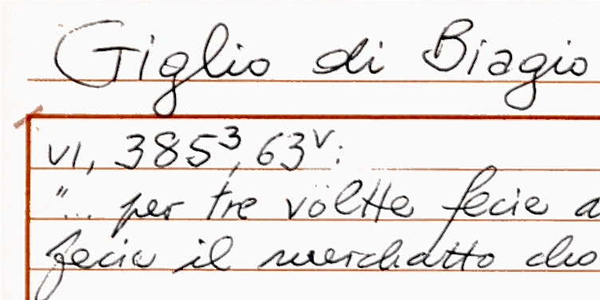 Giglio di Biagio
VI, 385³, 63ᵛ:
"... per tre voltte fecie a
fecie il merchatto cho